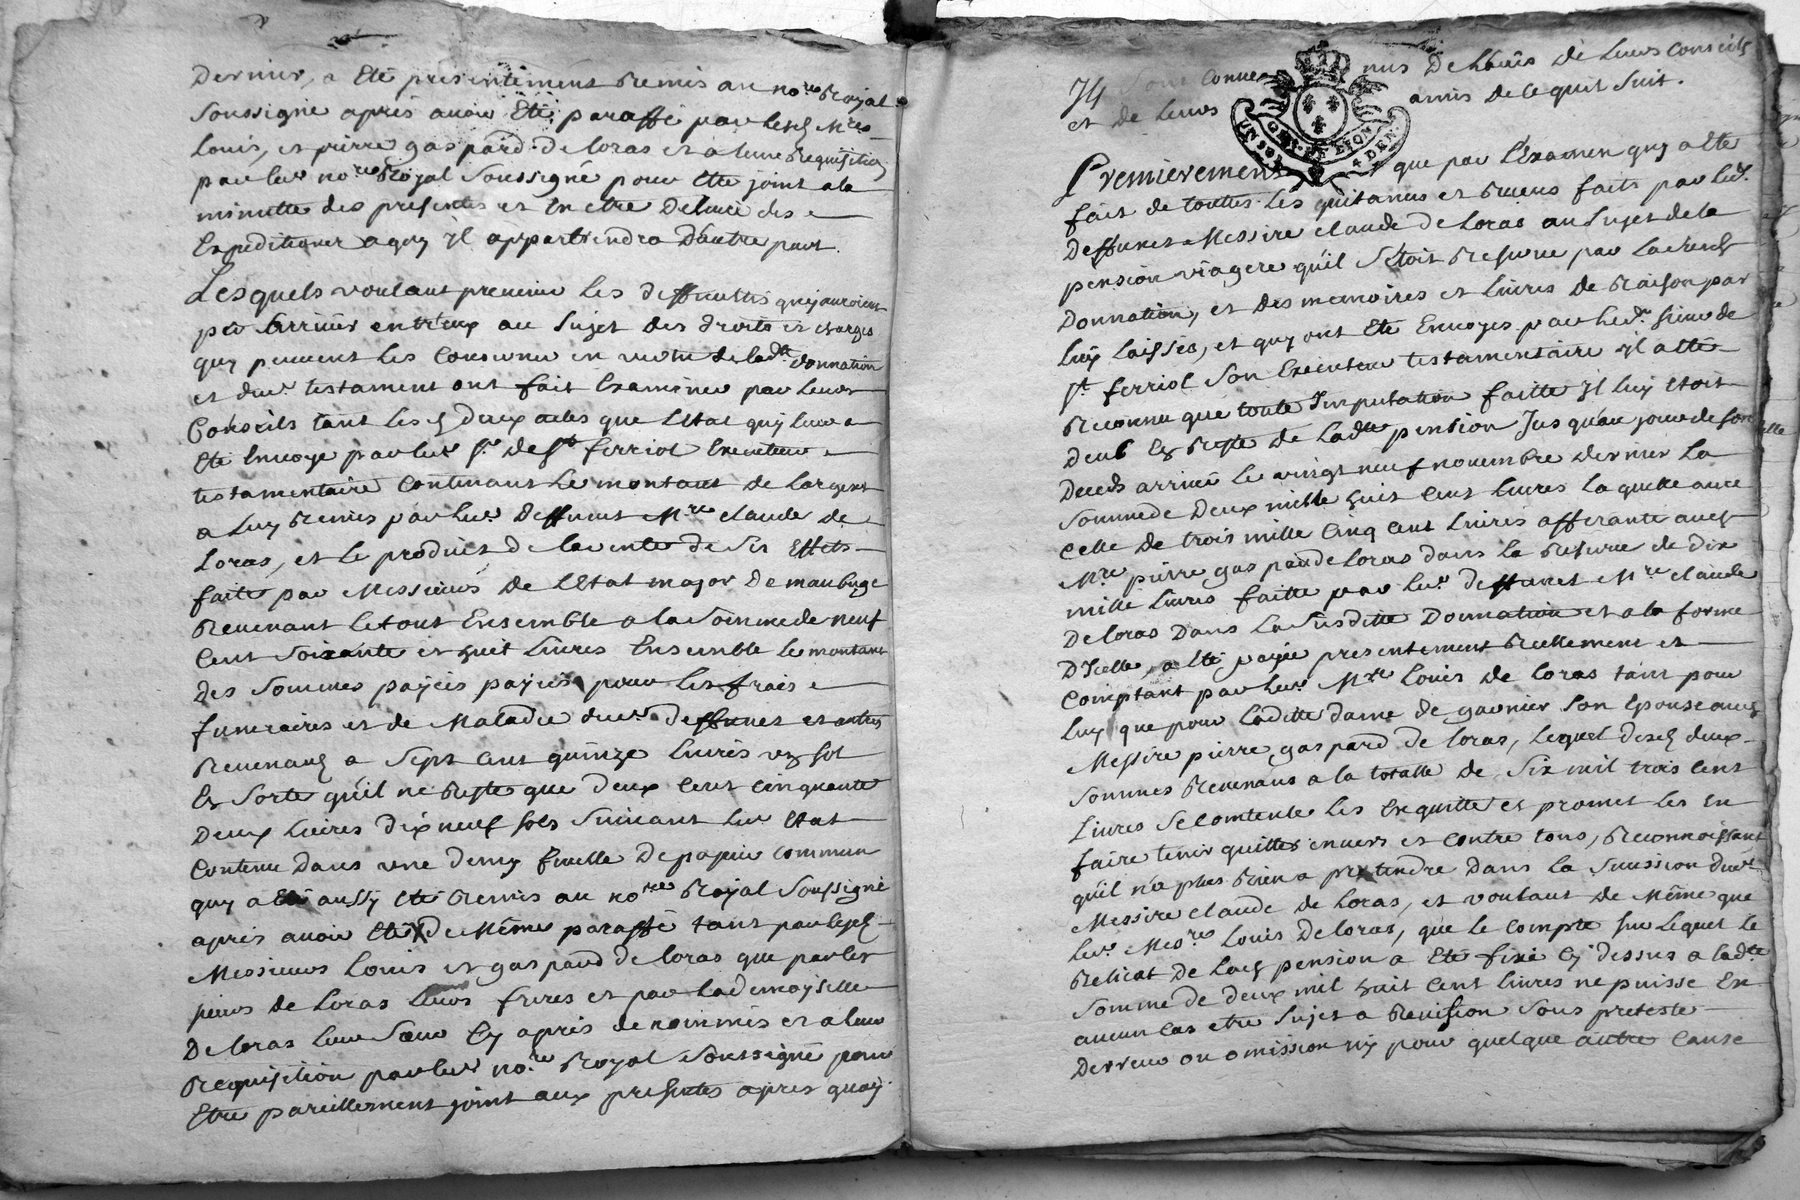 Dernier, a Eté presentement Remis au no.re Royal
Soussigné aprés auoir Eté paraffé par lesd Mres
Louis, et pierre gaspard de loras et a leur Requisition
par led. no.re Royal Soussigné pour Etre joint ala
minutte des presentes et En etre Deliuré des
Expeditions aquy Jl appartiendra D'autre part.
Lesquels voulant preuenir les difficultés quy auroient
pû Sarriuer entr'eux au Sujet des droits et charges
quy peuuent les Concerner en vertu de lad.te donnation
et dud. testament ont fait Examiner par leurs
Conseils tant lesd deux actes que l'Etat quy leur a
Eté Enuoyé par led. Sr. de St. ferriol Executeur
testamentaire Contenant le montant de l'argent
a luy Remis par led. Deffunt Mre claude de
Loras, et le produit de la vente de Ses Effets
faitte par Messieurs de l'Etat major de maubuge
Reuenant le tout Ensemble a la Somme de neuf
Cent Soixante et huit Liures Ensemble le montant
des Sommes payées payées pour les frais
funeraires et de Maladie dud. deffunct et autres
Reuenant a Sept Cent quinze Liures un sol
En Sorte qu'il ne Reste que deux Cent Cinquante
Deux Liures dix neuf sols Suiuant led. Etat
Contenu dans une demy feuille de papier commun
quy a Eté aussy Eté Remis au no.re Royal Soussigné
aprés auoir Eté de Même paraffé tant par lesd
Messieurs Louis et gaspard de loras que par les
sieurs de Loras leurs freres et par la demoyselle
De loras leur Sœur Cy aprés denommés et a leur
Requisition par led. no.re Royal Soussigné pour
Etre pareillement joint aux presentes aprés quoy
Jls Sont Conue nus De l'auis de leurs Conseils
et de leurs amis de ce quit Suit.
GN. DE LYON
UN SOL 4 DEN.
Premierement que par l'Examen quy a Eté
fait de toutes les quitances et Receus faits par led.
Deffunct Messire claude de Loras au Sujet de la
pension viagere qu'il S'étoit Reserue par lad
Donnation, et des memoires et liures de Raison par
luy laissés, et quy ont Eté Enuoyés par led. sieur de
St. ferriol Son Executeur testamentaire Jl a Eté
Reconnu que toute Jmputation faitte Jl luy Etoit
Deub En Reste de ladte pension Jusqu'au jour de son
Deceds arriué le vingt neuf nouembre dernier la
Somme de Deux mille huit Cent Liures laquelle auec
Celle de trois mille Cinq Cent Liures afferante aud
Mre pierre gaspard de loras dans la Reserue de dix
mille Liures faitte par led. deffunct Mre claude
De loras dans la Susditte Donnation et a la forme
D'Jcelle, a Eté payée presentement Reellement et
Comptant par led. Mre Louis de Loras tant pour
luy que pour laditte dame de garnier Son Epouse aud
Messire pierre gaspard de loras, lequel desd deux
Sommes Reuenans a la totalle de Six mil trois Cent
Liures Se Contente les En quitte et promet les En
faire tenir quittes enuers et contre tous, Reconnoissant
qu'il n'a plus Rien a pretendre Dans la Succession dud.
Messire claude de Loras, et voulant de Même que
led. Mes.re Louis De loras, que le Compte Sur lequel le
Relicat de lad pension a Eté fixé Cy dessus a lad.te
Somme de deux mil huit Cent Liures ne puisse En
aucun Cas etre Sujet a Reuision Sous pretexte
D'erreur ou omission ny pour quelque autre Cause